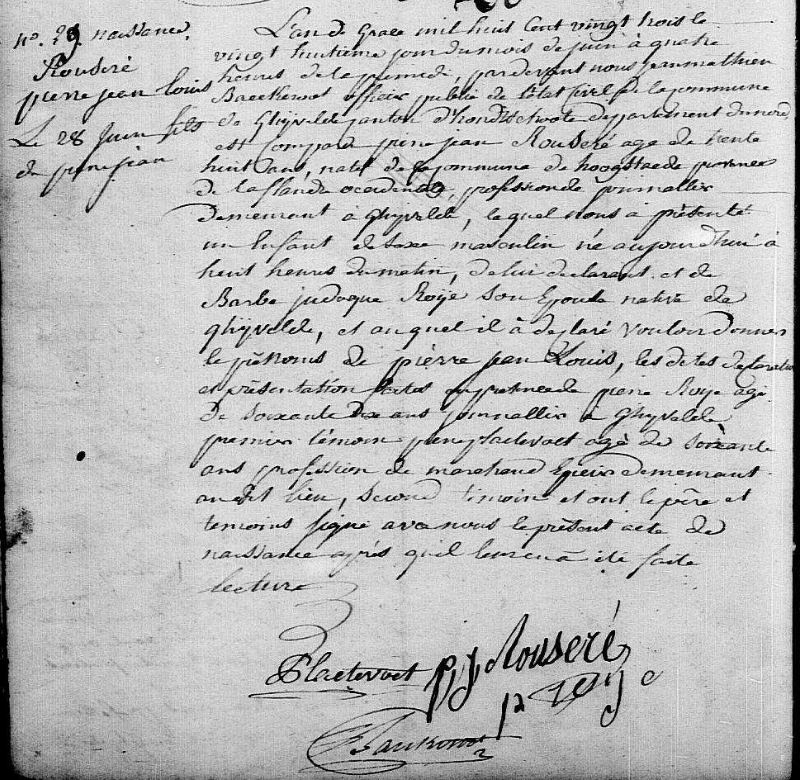 n°. 29 naissance.
Rouseré
pierre jean louis
Le 28 Juin fils
de pierre jean
L'an de Grace mil huit Cent vingt trois le
vingt huitieme jour du mois de juin à quatre
heures de la remedi, pardevant nous jean mathieu
Baeckeroot officier public de l'etat civil de la commune
de Ghyvelde canton d'hondschoote departement du nord,
est comparu pierre jean Rouseré age de trente
huit ans, natif de la commune de hoogstaede province
de la flandre occidental, profession de journallier
demeurant à Ghyvelde, lequel nous à présenté
un Enfant de sexe masculin né aujourd'hui à
huit heures du matin, de lui declarant et de
Barbe judoque Roÿe son Epouse native de
ghyvelde, et auquel il à declaré vouloir donner
le prénoms de pierre jean Louis, les dites declaration
et présentation faites en présence de pierre Roÿe agé
de soixante dix ans journallier à Ghyvelde
premier témoin pierre Plaetevoet agé de soixante
ans profession de marchand Epicier demeurant
au dit lieu, second temoin et ont le père et
temoins signé avec nous le présent acte de
naissance après qu'il leur en à été faite
lecture
Plaetevoet p j Rouseré
p Roye
Baeckeroot